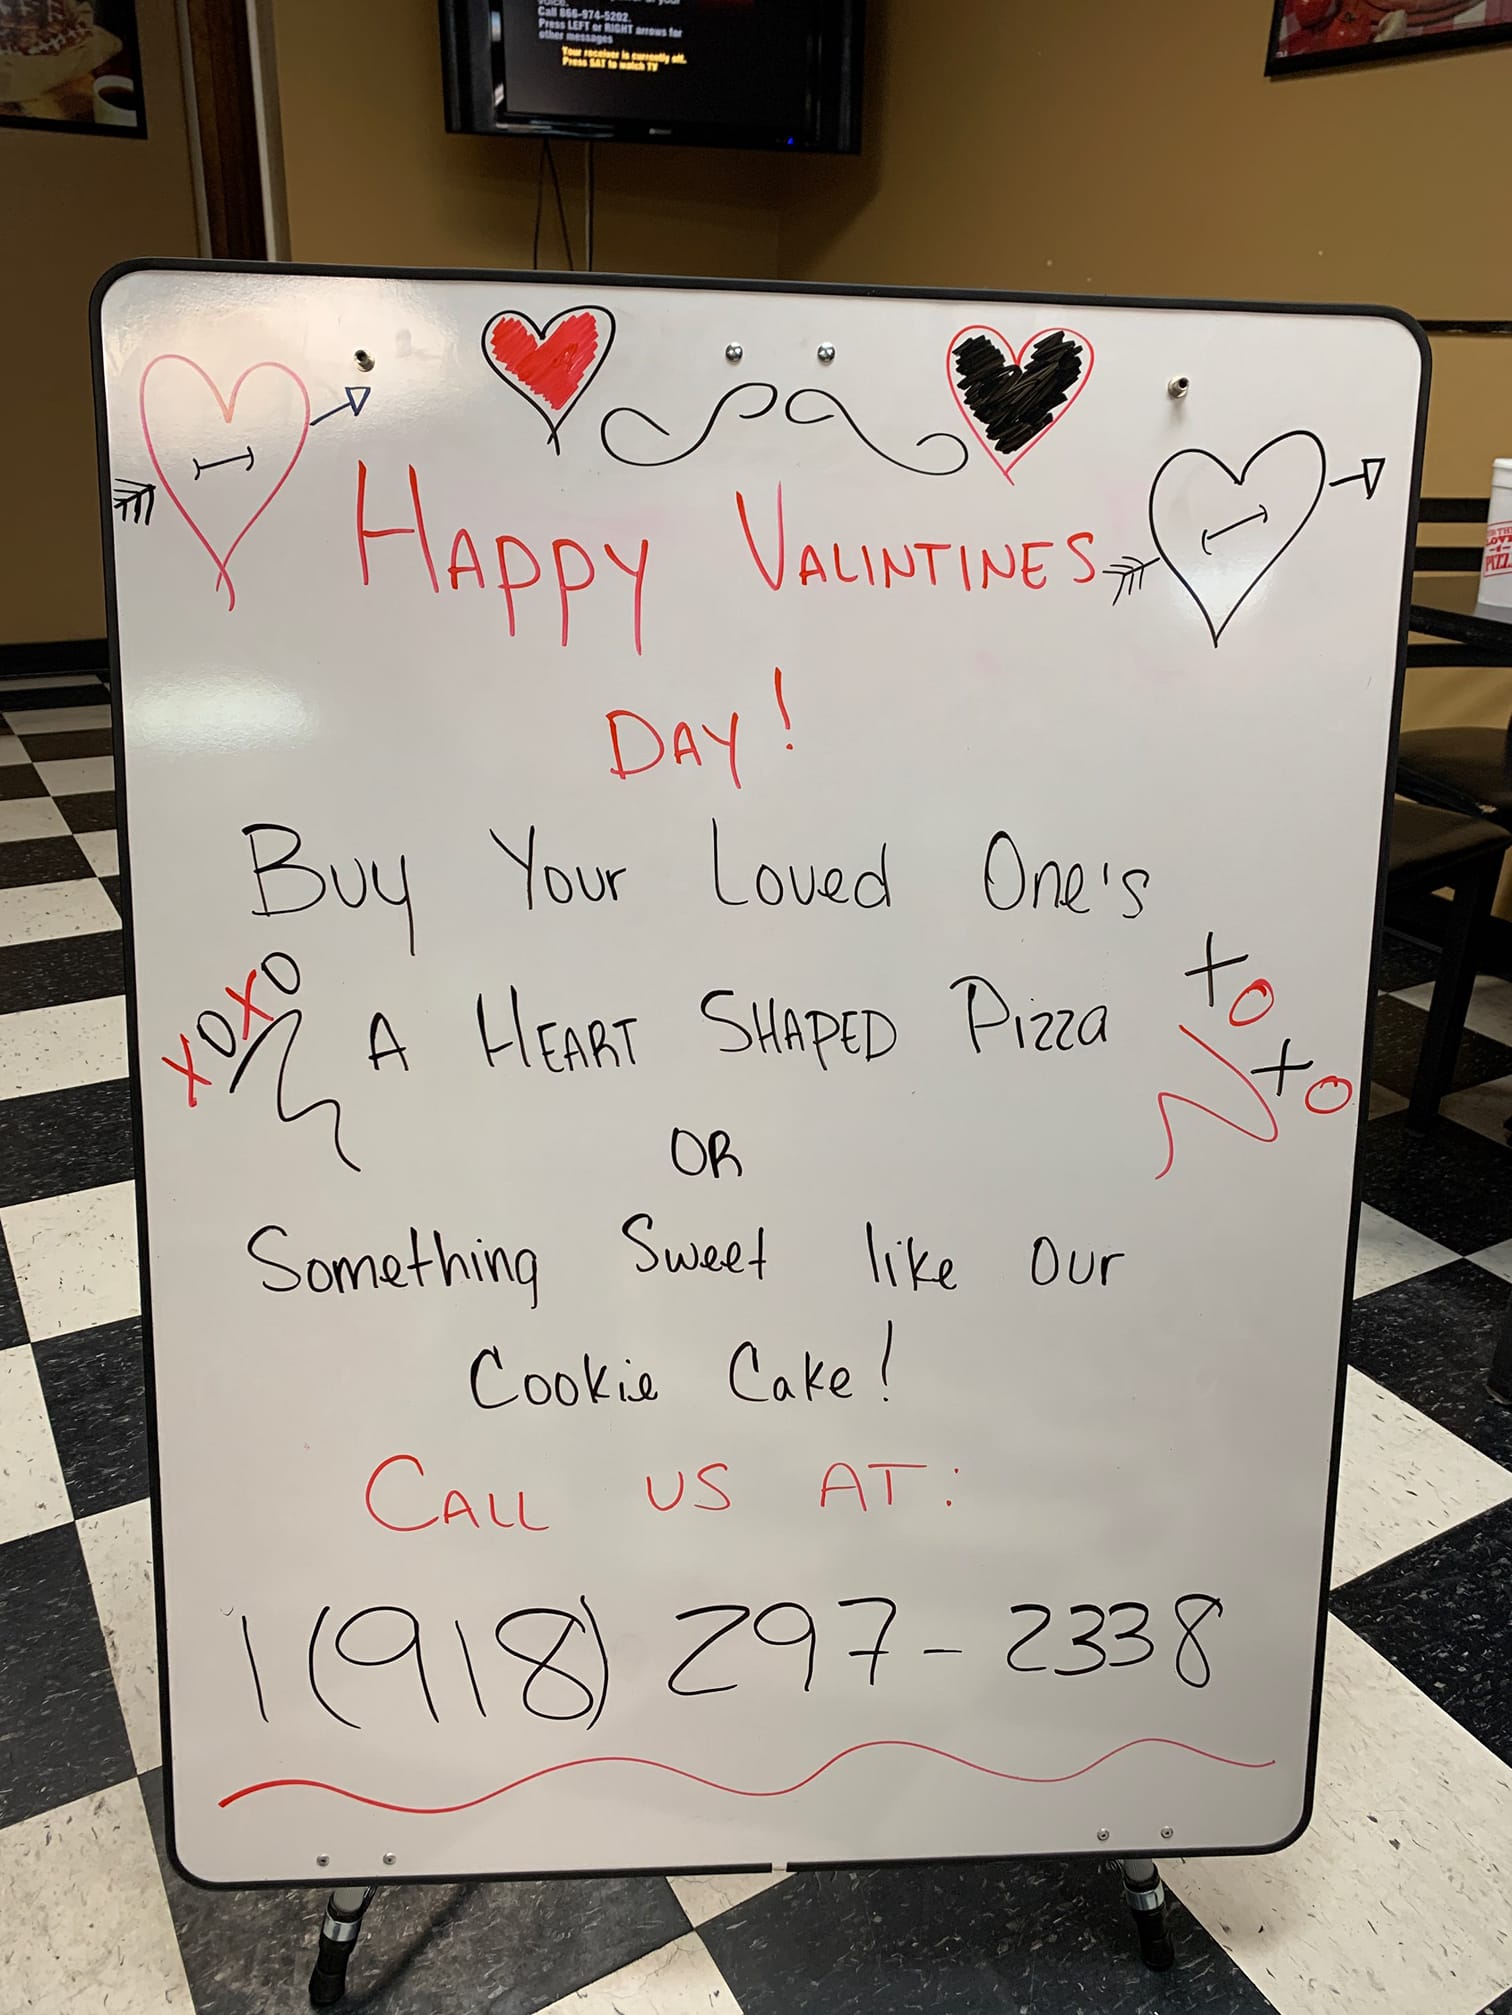 voice.
Call 866-974-5202.
Press LEFT or RIGHT arrows for
other messages
Your receiver is currently off.
Press SAT to watch TV
HAPPY VALINTINES
DAY!
Buy Your Loved One's
XOXO
A HEART SHAPED Pizza
XOXO
OR
Something Sweet like Our
Cookie Cake!
CALL US AT:
1(918) 297-2338
LOVE
PIZZ